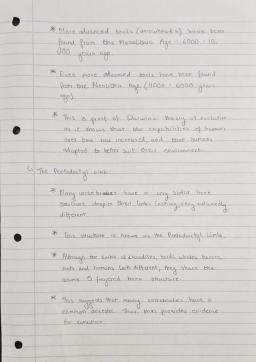 * More advanced tools (arrowheads) have been
found from the Mesolithic Age - 6000 - 10,
000 years ago.
* Even more advanced tools have been found
from the Neolithic Age (4000 - 6000 years
ago)
* This is proof of Darwin's theory of evolution
as it shows that the capabilities of humans
over time has increased, and have humans
adapted to better suit their environment.
The Pentadactyl Limb
* Many vertebrates have a very similar bone
structure despite their limbs looking very outwardly
different.
* This structure is known as the Pentadactyl Limb.
* Although the limbs of
bats and humans look different, they share the
same 5 fingered bone structure.
* This suggests that many vertebrates have a
common ancestor. Thus, this provides evidence
for evolution.